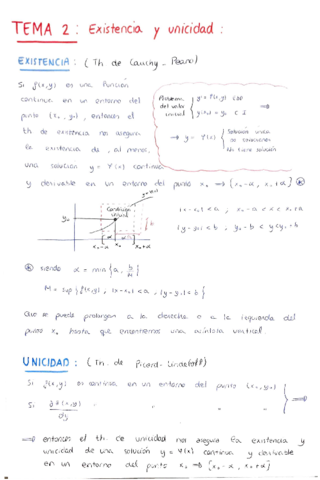 TEMA 2: Existencia y unicidad:
EXISTENCIA: (Th de Cauchy-Peano)
Si f(x,y) es una función
continua en un entorno del
punto (x₀, y₀), entonces el
th de existencia nos asegura
la existencia de, al menos,
una solución y = Y(x) continua
y derivable en un entorno del punto x₀ ⟹ (x₀-α, x₀+α) ⊛
Problema
del valor
inicial
y' = f(x,y) EDO
y(x₀) = y₀ C.I
⟹
⟹ y = Y(x)
Solución única
∞ soluciones
No tiene solución
y=Y(x)
Condición
inicial
y₀
b
a
x₀-α x₀ x₀+α
|x-x₀| < a , x₀-a < x < x₀+a
|y-y₀| < b , y₀-b < y < y₀+b
⊛ siendo α = min {a, b/M}
M = sup {f(x,y), |x-x₀| < a, |y-y₀| < b}
Que se puede prolongar a la derecha o a la izquierda del
punto x₀ hasta que encontremos una asíntota vertical.
UNICIDAD: (Th. de Picard-Lindelöff)
Si f(x,y) es continua en un entorno del punto (x₀, y₀)
Si ∂f(x,y)/∂y " " " "
⟹
⟹ entonces el th. de unicidad nos asegura la existencia y
unicidad de una solución y = Y(x) continua y derivable
en un entorno del punto x₀ ⟹ (x₀-α, x₀+α)